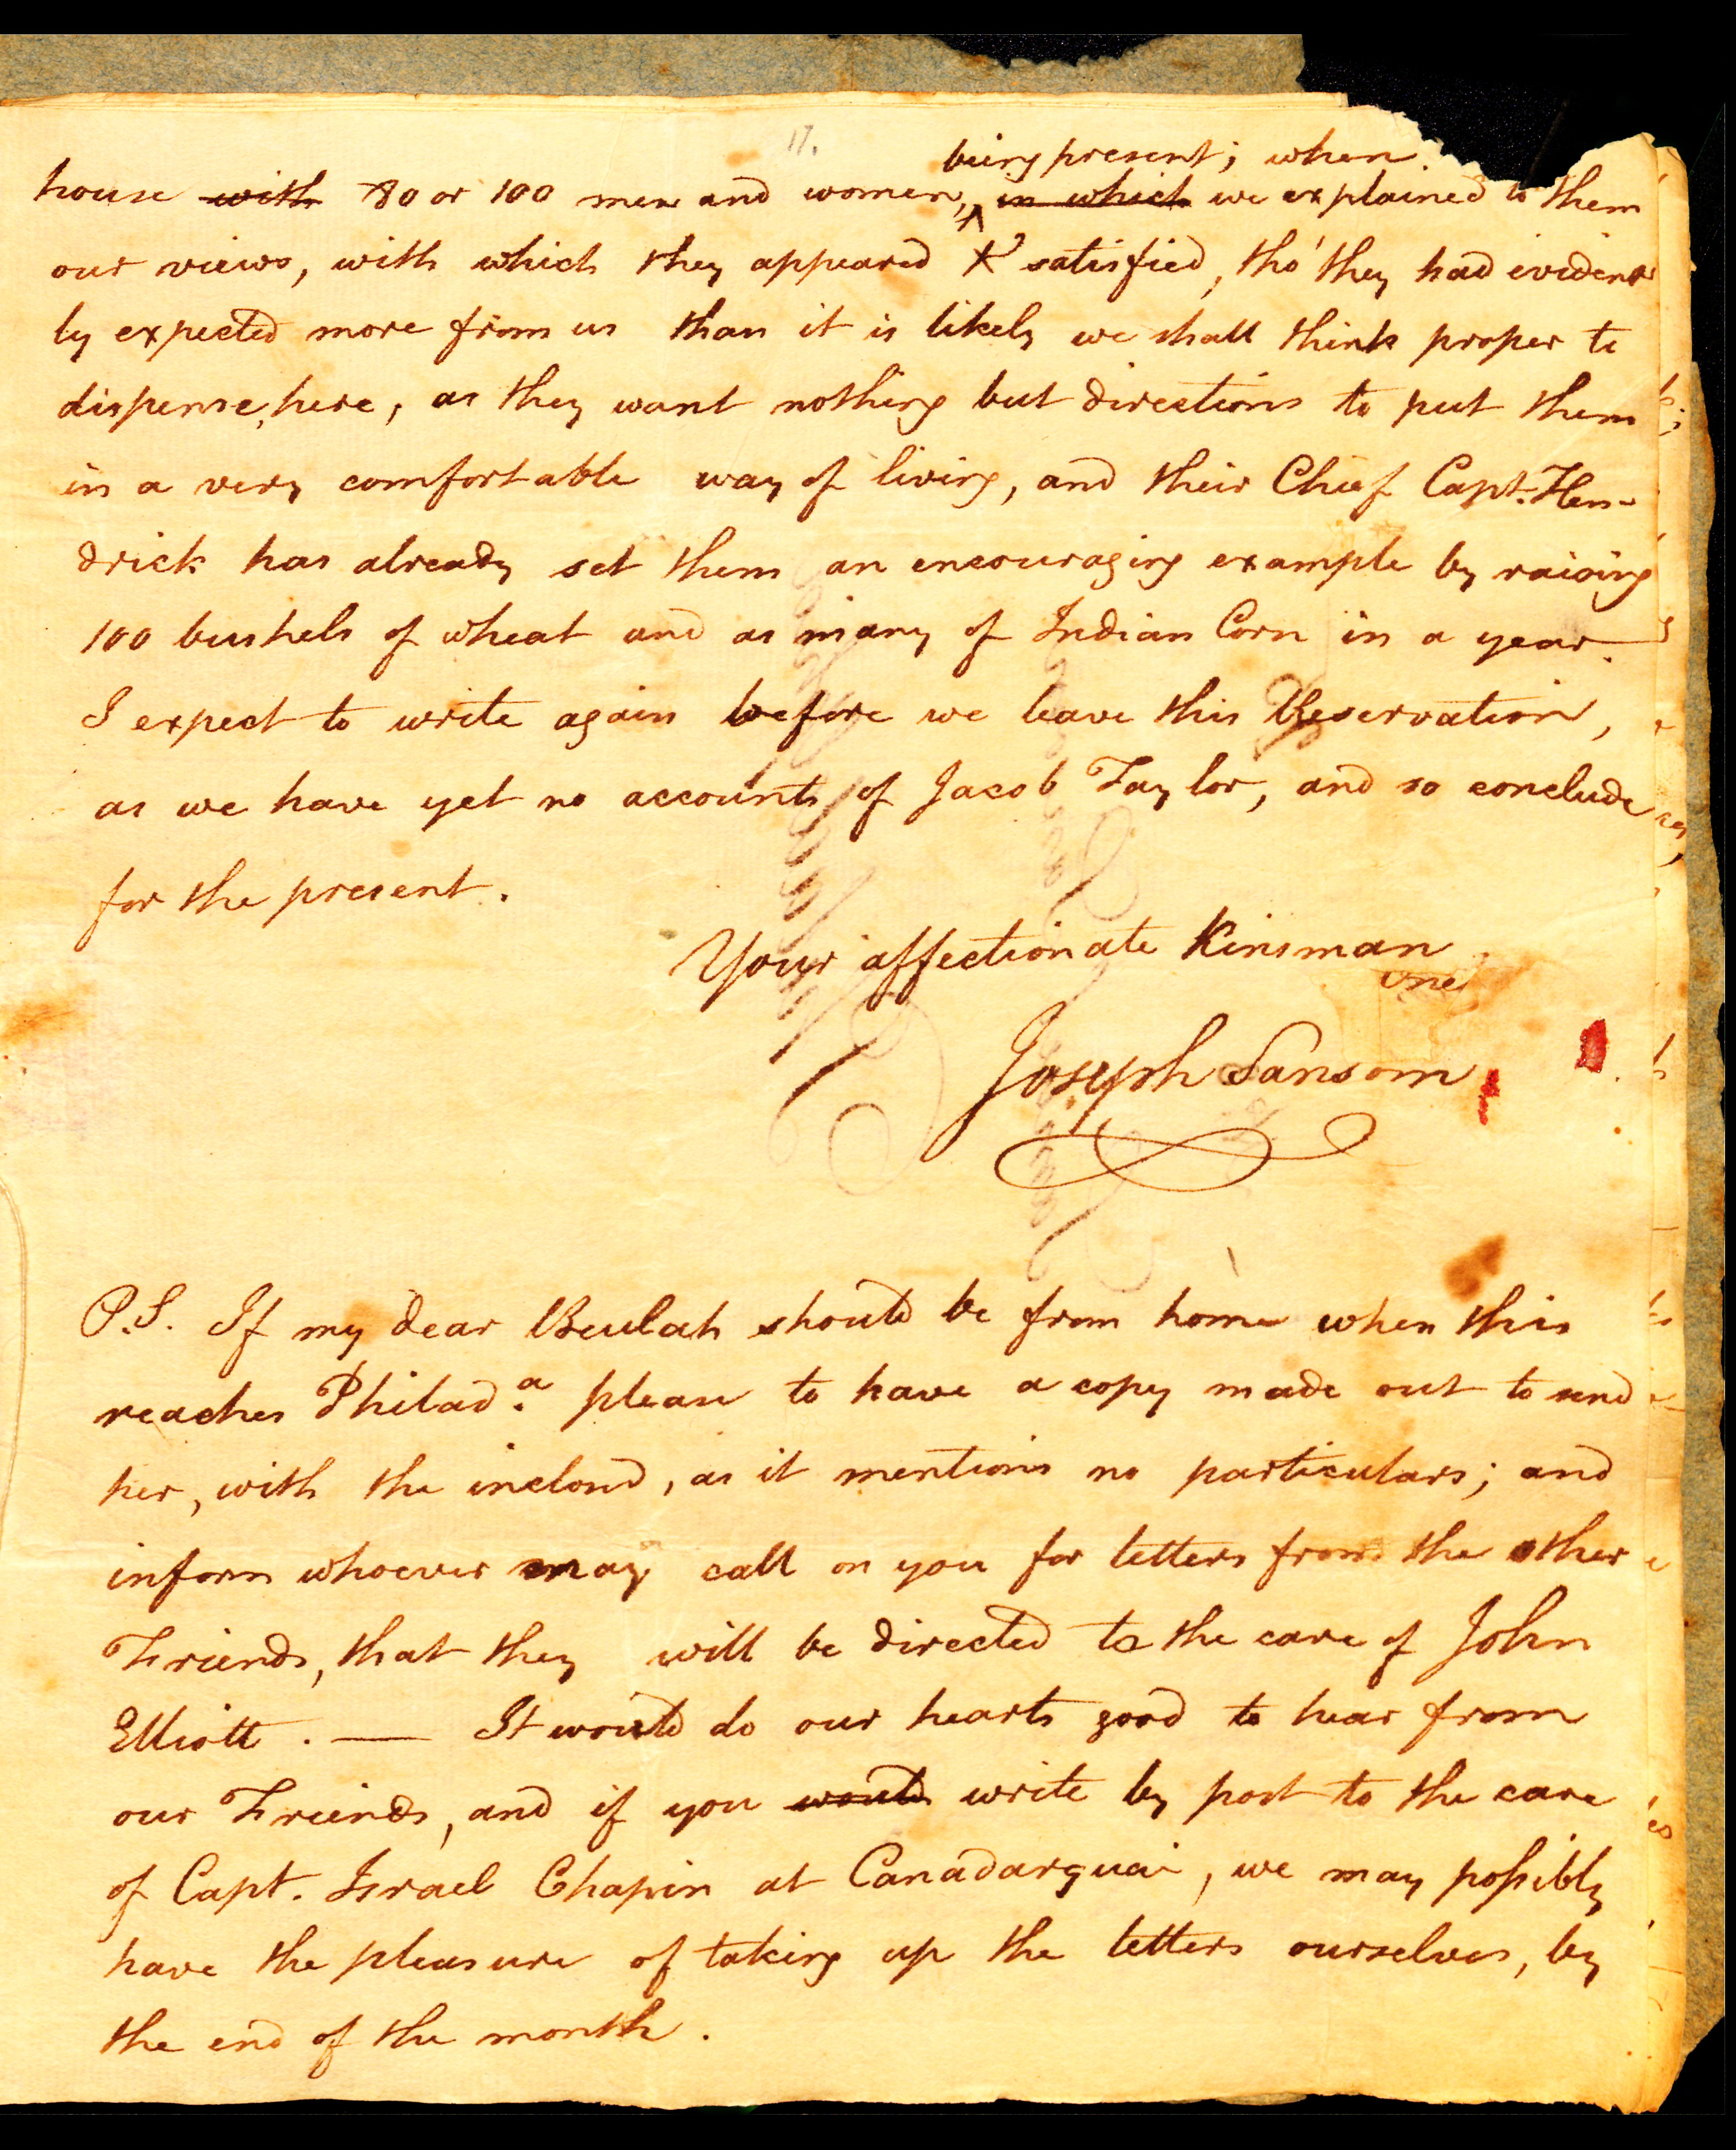 17.
being present; when
house with 80 or 100 men and women, in which we explained to them
our views, with which they appeared satisfied, tho' they had evident
ly expected more from us than it is likely we shall think proper to
dispense, here, as they want nothing but directions to put them
in a very comfortable way of living, and their Chief Capt. Hen-
drick has already set them an encouraging example by raising
100 bushels of wheat and as many of Indian Corn in a year.
I expect to write again before we leave this Reservation,
as we have yet no accounts of Jacob Taylor, and so conclude
for the present.
Your affectionate Kinsman
Joseph Sansom
P.S. If my dear Beulah should be from home when this
reaches Philad.a please to have a copy made out to send
her, with the inclosd, as it mentions no particulars; and
inform whoever may call on you for letters from the other
Friends, that they will be directed to the care of John
Elliott. — It would do our hearts good to hear from
our Friends, and if you would write by post to the care
of Capt. Israel Chapin at Canadarquai, we may possibly
have the pleasure of taking up the letters ourselves, by
the end of the month.